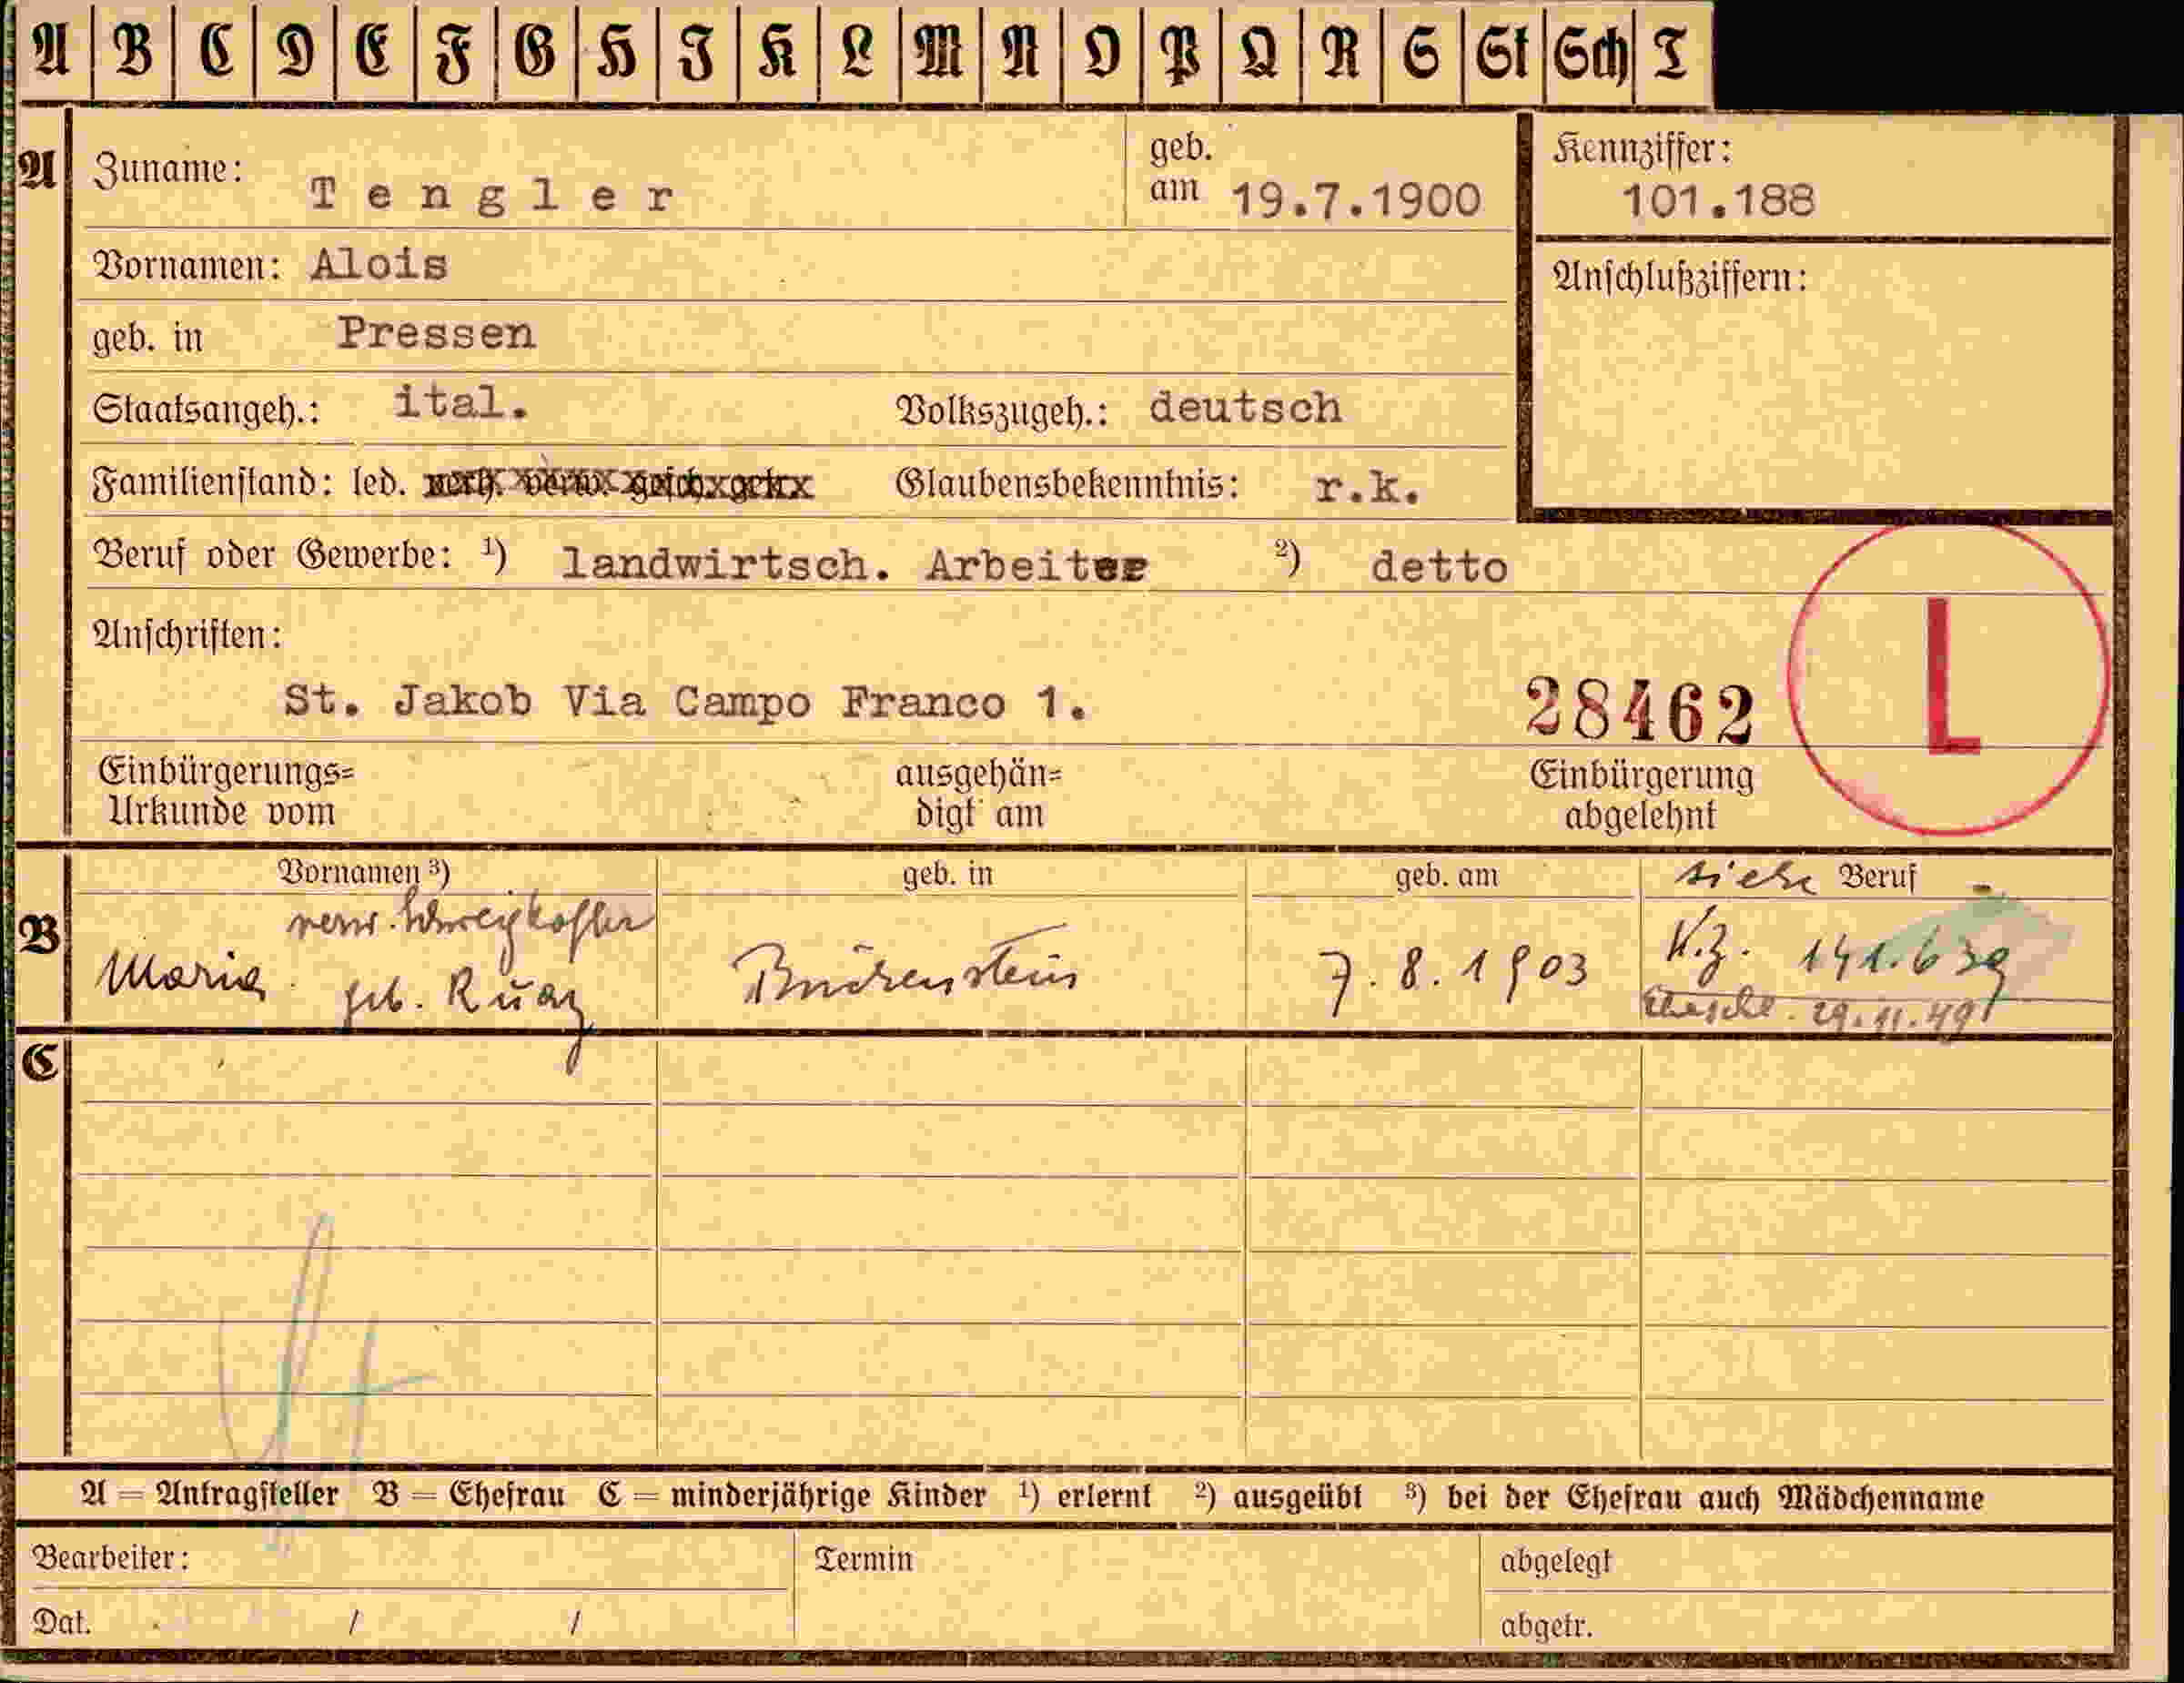 A B C D E F G H I K L M N O P Q R S St Sch T
A
Zuname: Tengler
geb. am 19.7.1900
Kennziffer: 101.188
Vornamen: Alois
Anschlußziffern:
geb. in Pressen
Staatsangeh.: ital. Volkszugeh.: deutsch
Familienstand: led. verh. verw. gesch. getr. Glaubensbekenntnis: r.k.
Beruf oder Gewerbe: 1) landwirtsch. Arbeiter 2) detto
Anschriften:
L
St. Jakob Via Campo Franco 1. 28462
Einbürgerungs=
Urkunde vom
ausgehän=
digt am
Einbürgerung
abgelehnt
B
Vornamen 3) geb. in geb. am siehe Beruf
verw.
Maria geb. 7.8.1903 K.z. 141.639
Ehesch. 29.11.49
C
A = Antragsteller B = Ehefrau C = minderjährige Kinder 1) erlernt 2) ausgeübt 3) bei der Ehefrau auch Mädchenname
Bearbeiter: Termin abgelegt
Dat. / / abgetr.